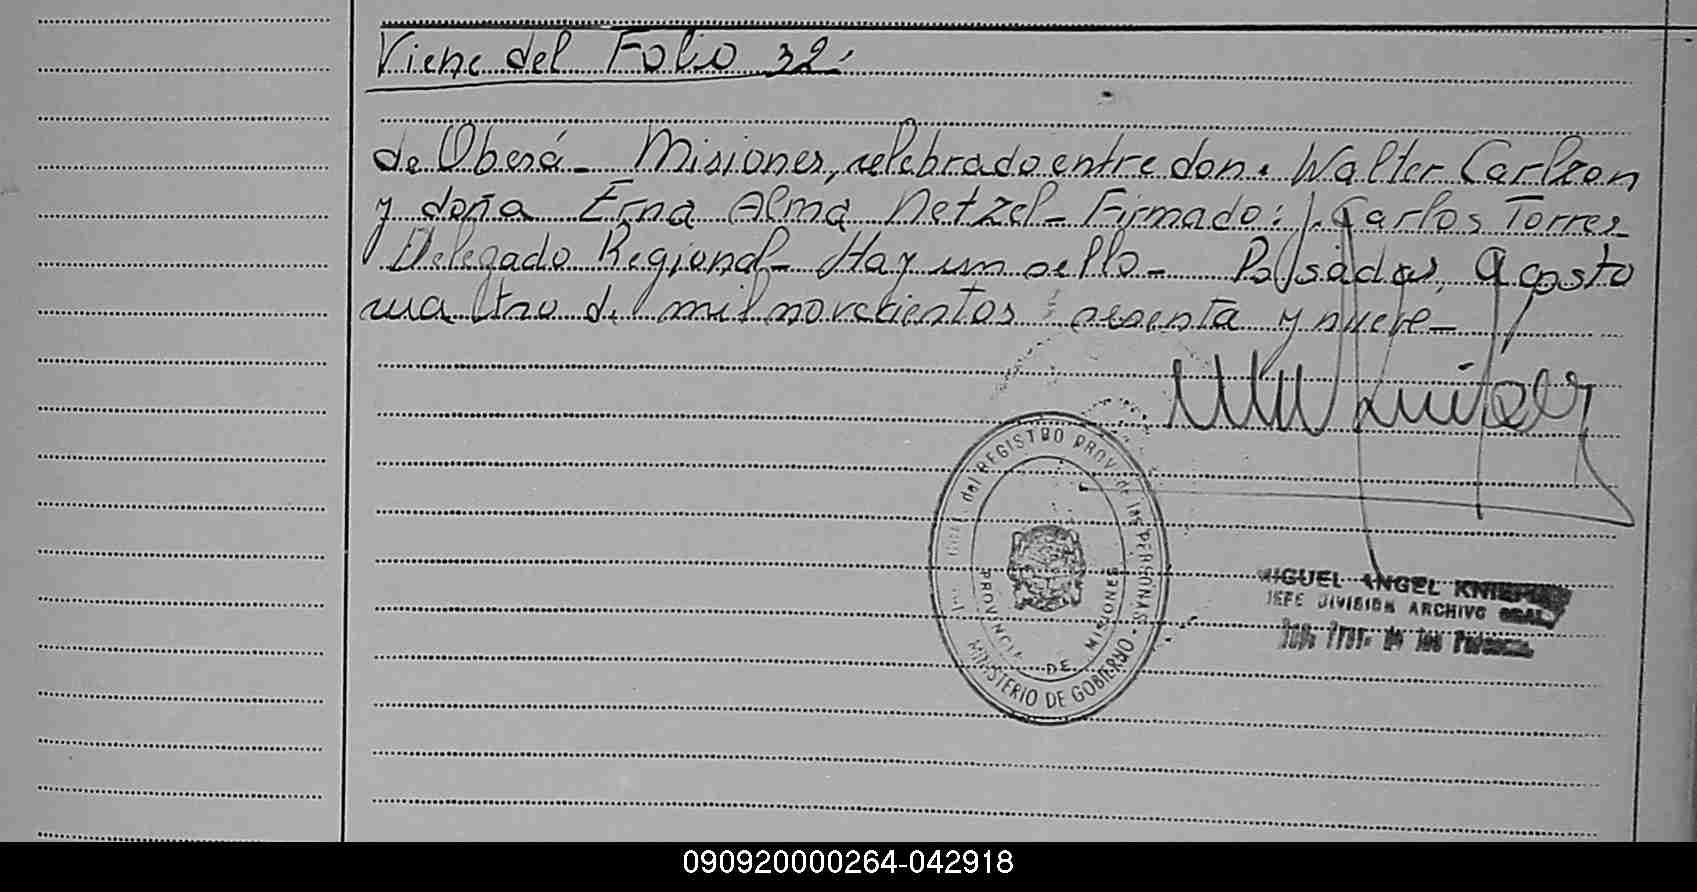 Viene del Folio 32.
de Oberá - Misiones, celebrado entre don. Walter Carlzon
y doña Erna Alma Netzel - Firmado: J. Carlos Torres
Delegado Regional - Hay un sello - Posadas, Agosto
cuatro de mil novecientos sesenta y nueve -
del REGISTRO PROV. de las PERSONAS
PROVINCIA DE MISIONES
MINISTERIO DE GOBIERNO
MIGUEL ANGEL
JEFE DIVISION ARCHIVO GRAL.
090920000264-042918